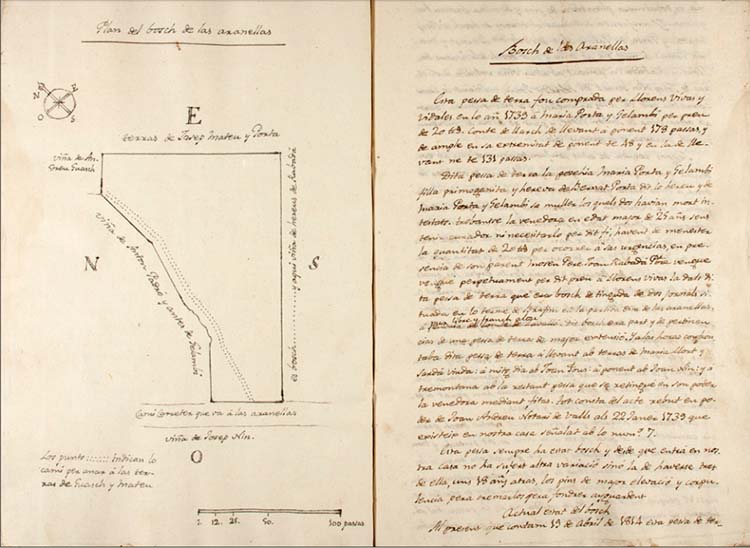 Plan del bosch de las aranellas
N
S
O
E
terras de Josep Mateu y Porta
viña de An-
dreu Guasch
viña de Anton Padró y antes de Gelambi
es bosch........y aquí viña de hereus de Rabadá
N
S
Camí Carreter que va á las aranellas
viña de Josep Nin.
O
Los punts ...... indican lo
camí per anar á las ter-
ras de Guasch y Mateu
1 12. 25. 50. 100 passas
Bosch de las Aranellas
Esta pessa de terra fou comprada per Llorens Vivas y
Vidales en lo añ 1739 á Maria Porta y Gelambi per preu
de 20 ℔. Conte de llarch de llevant á ponent 178 passas, y
de ample en sa extremitat de ponent de 48 y en la de lle-
vant ne té 131 passas.
Dita pessa de terra la posehia Maria Porta y Gelambi
filla primogenita y hereva de Bernat Porta dit lo hereu y de
Maria Porta y Gelambi sa muller los quels dos havian mort in-
testats. trobantse la venedora en edat major de 25 añs sens
tenir curador ni necesitarlo per dit fi, havent de menester
la quantitat de 20 ℔ per ocorrer á sas urgencias, en pre-
sencia de son parent Mosen Pere Joan Rabadá Pbre. vengue
vengue perpetuament per dit preu á Llorens Vivas la dats di-
ta pessa de terra que era bosch de tinguda de dos jornals si-
tuada en lo terme de y en la partida dita de las aranellas,
per lliure y franch alou
dit bosch era part y de pertinen-
cias de una pessa de terra de major extenció. Y alas horas confron-
taba dita pessa de terra á llevant ab terras de Maria Llort y
Sardá viuda: á mitg dia ab Joan : á ponent ab Joan Nin: y á
tremontana ab la restant pessa que se retingue en son poder
la venedora mediant fitas. Tot consta del acte rebut en po-
der de Joan Notari de Valls als 22 Janer 1739 que
existeix en nostra casa señalat ab lo num.º 7.
Esta pessa sempre ha estat bosch y desde que entrá en nos-
tra casa no ha sufert altra variació sino la de haverse tret
de ella, uns 18 añs atras, los pins de major elevació y corpu-
lencia, pera cremarlos pera fondrer aiguardent
Actual estat del bosch
Al present que contam 19 de Abril de 1814 esta pessa de ter-